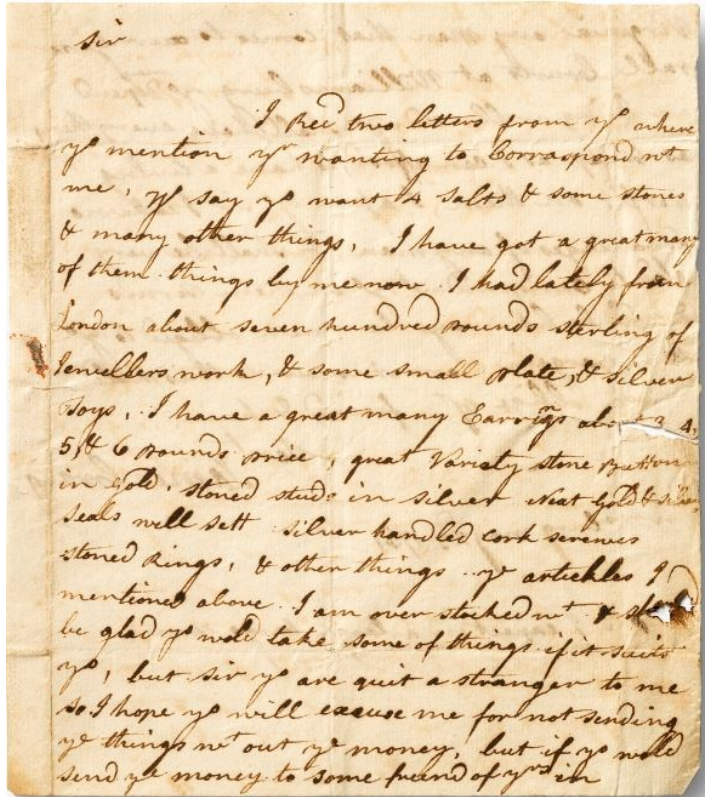 Sir
I Recd two letters from yo where
yo mention yr wanting to Corraspond wt
me, yo say yo want 4 Salts & some stones
& many other things, I have got a great many
of them things by me now. I had lately from
London about seven hundred pounds sterling of
Jewellers work, & some small plate, & silver
Toys, I have a great many Earrings above 3 4,
5, & 6 pounds price, great Variety stone Buttons
in Gold, stoned studs in silver Neat Gold & silver
seals well sett silver handled Cork screwes
stoned Rings, & other things ye artickles I
mentioned above I am over stocked wt &
be glad yo wold take some of things if it suits
yo, but sir yo are quit a stranger to me
so I hope yo will excuse me for not sending
ye things wt out ye money, but if yo wold
send ye money to some friend of yrs in